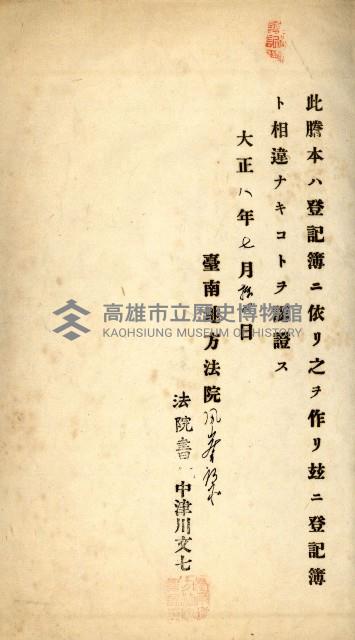 此謄本ハ登記簿ニ依リ之ヲ作リ玆ニ登記簿
ト相違ナキコトヲ認證ス
大正八年七月 日
臺南地方法院
法院書 中津川文七
高雄市立歷史博物館
KAOHSIUNG MUSEUM OF HISTORY